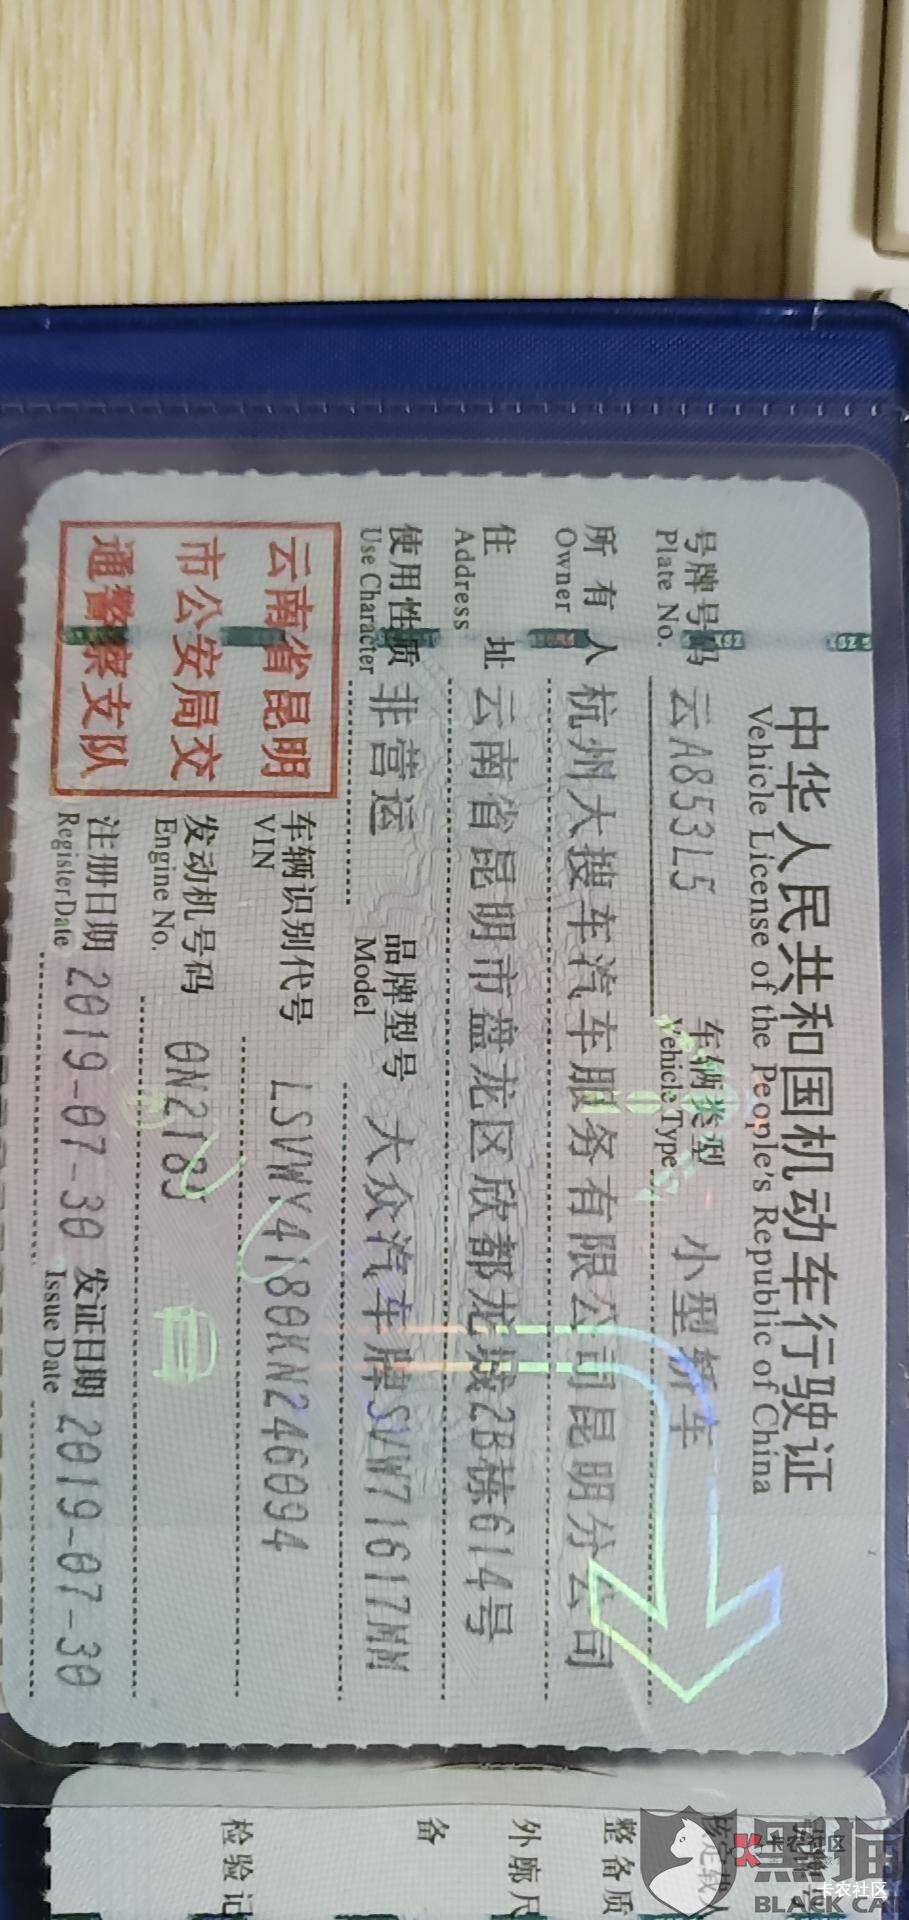 中华人民共和国机动车行驶证
Vehicle License of the People's Republic of China
号牌号码 云A853L5 车辆类型 小型轿车
Plate No. Vehicle Type
所有人 杭州大搜车汽车服务有限公司昆明分公司
Owner
住址 云南省昆明市盘龙区欣都龙城2B栋614号
Address
使用性质 非营运 品牌型号 大众汽车牌SVW71617MM
Use Character Model
云南省昆明
市公安局交
通警察支队
车辆识别代号 LSVWY4180KN246094
VIN
发动机号码 0N2189
Engine No.
注册日期 2019-07-30 发证日期 2019-07-30
Register Date Issue Date
整备质
外廓尺
备
检验记
黑猫
BLACK CAT
卡农社区